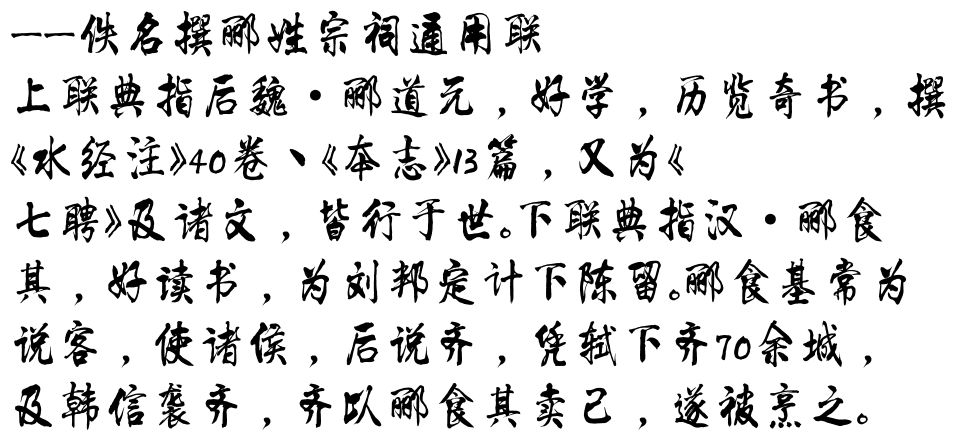 ——佚名撰郦姓宗祠通用联
上联典指后魏·郦道元，好学，历览奇书，撰
《水经注》40卷、《本志》13篇，又为《
七聘》及诸文，皆行于世。下联典指汉·郦食
其，好读书，为刘邦定计下陈留。郦食基常为
说客，使诸侯，后说齐，凭轼下齐70余城，
及韩信袭齐，齐以郦食其卖己，遂被烹之。